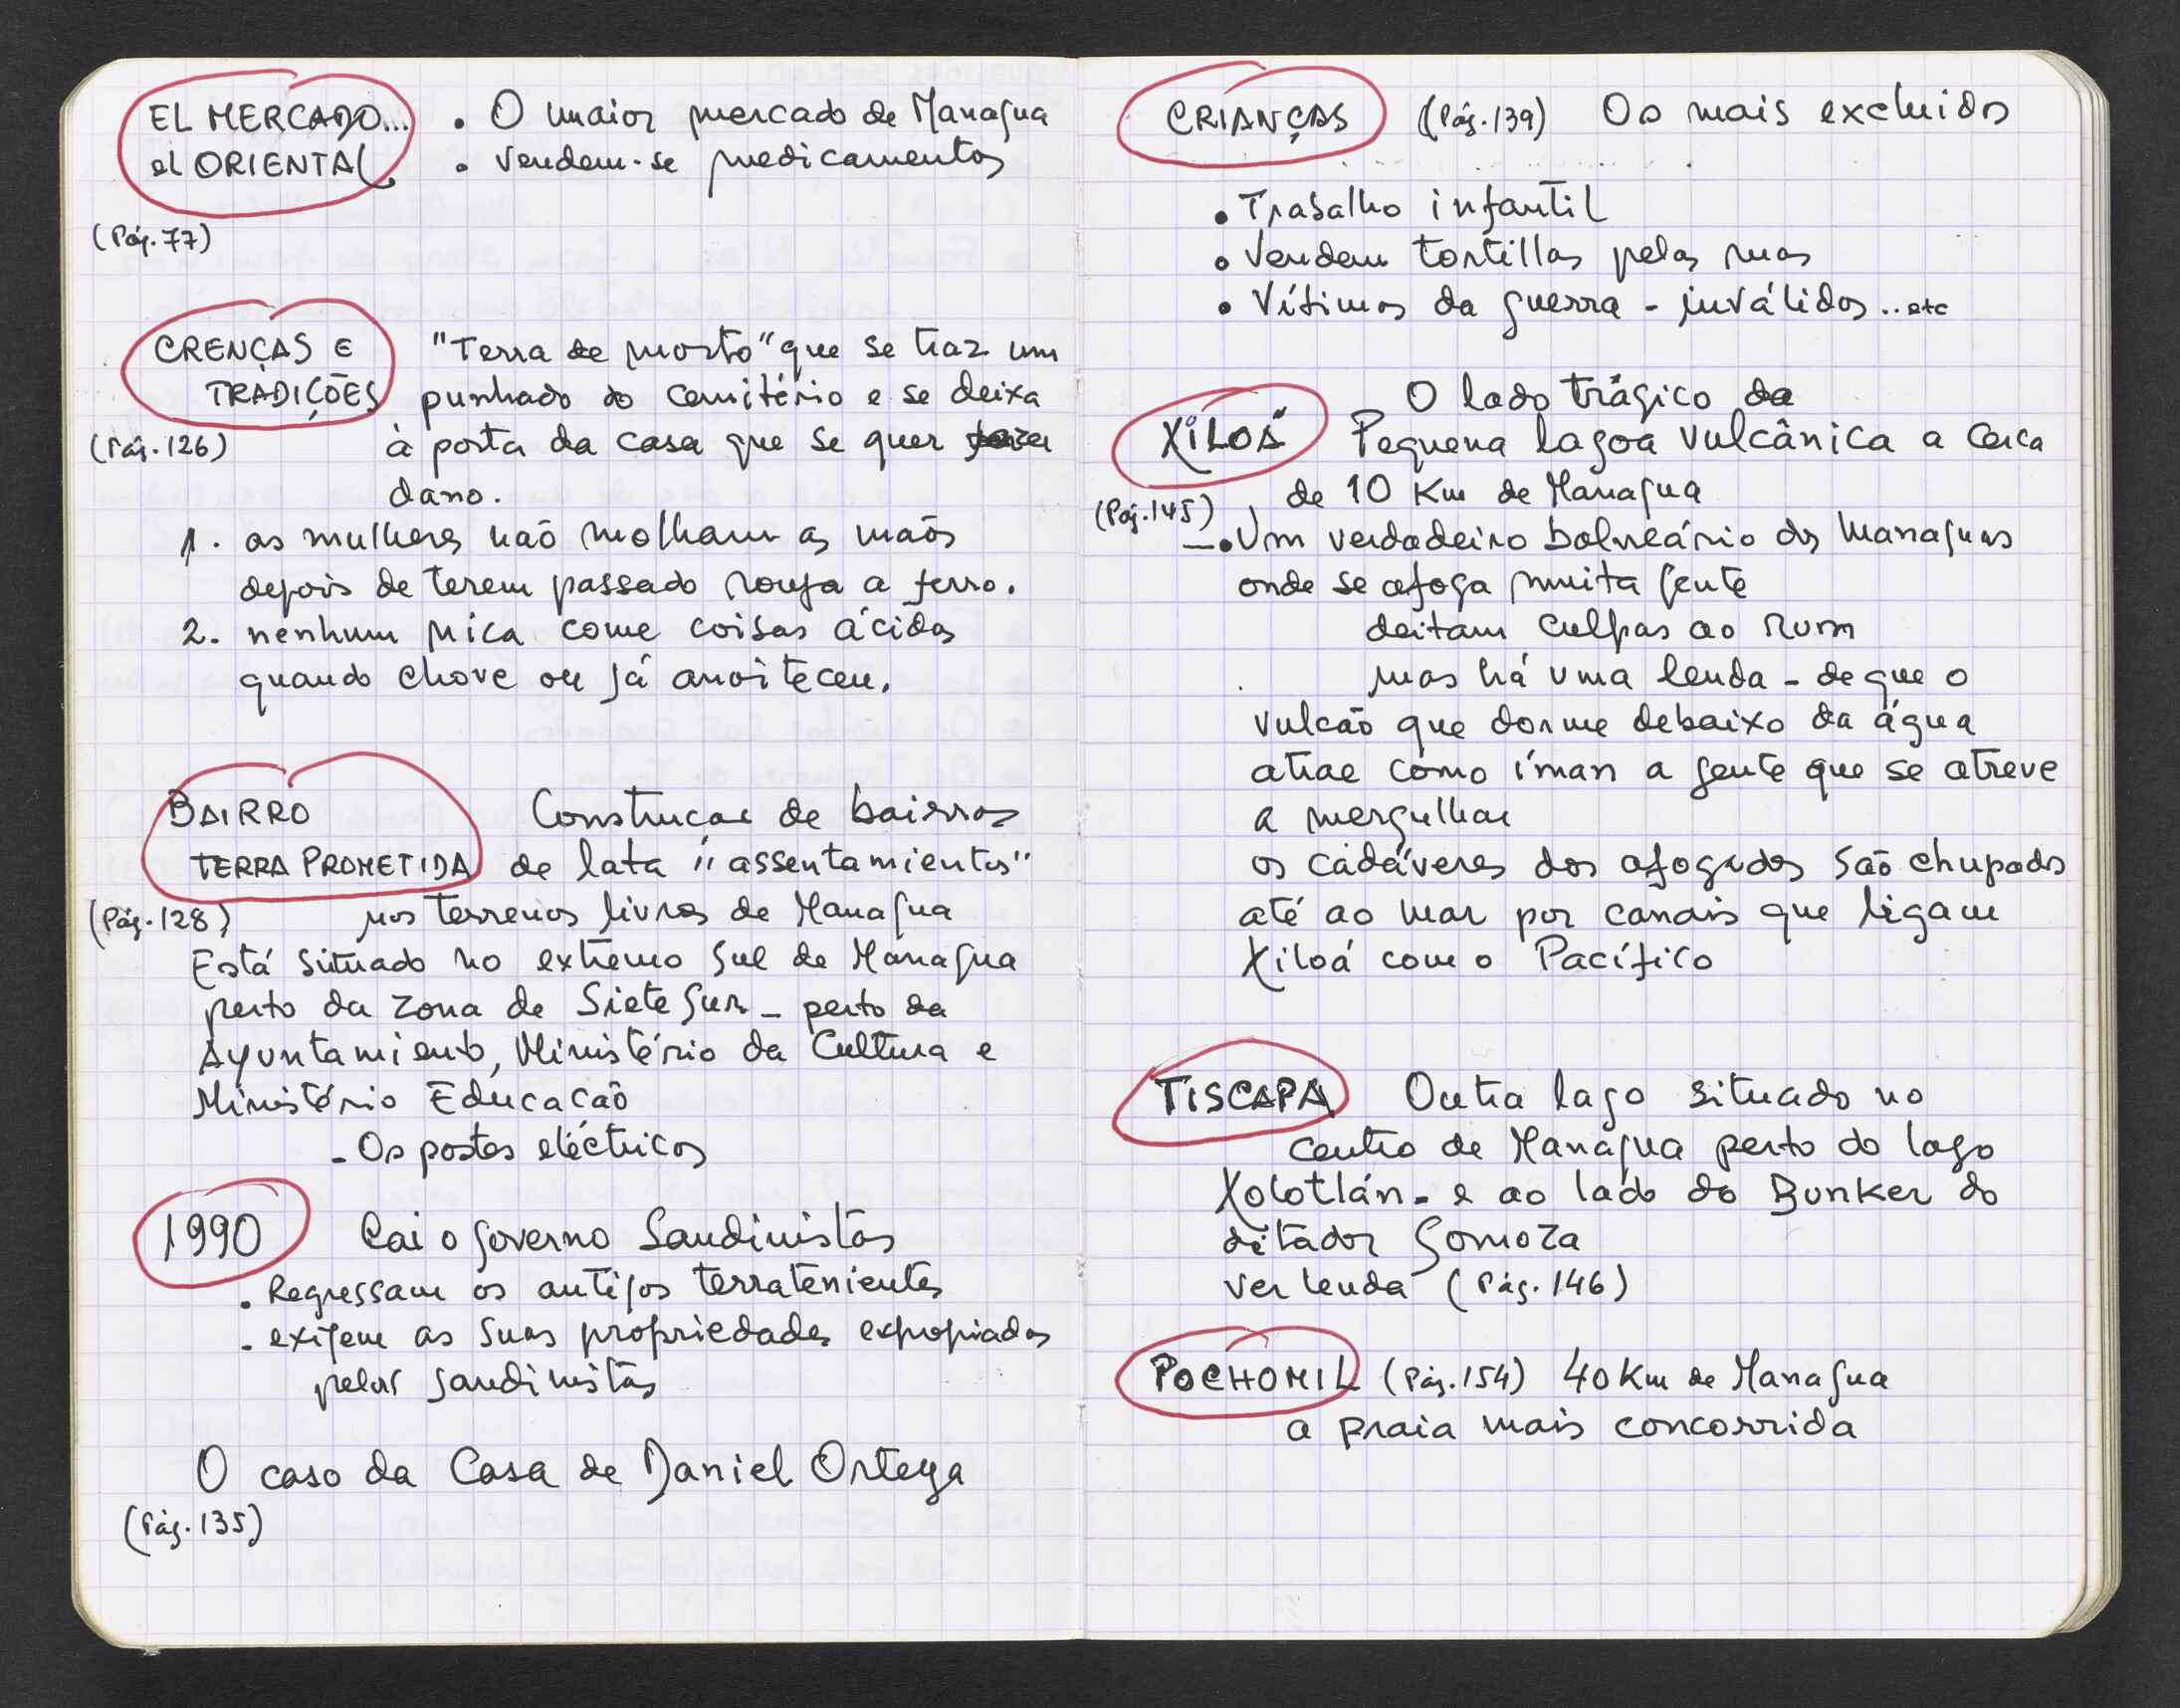 EL MERCADO...
el ORIENTAL
• O maior mercado de Managua
• Vendem-se medicamentos
(Pág. 77)
CRENÇAS E
TRADIÇÕES
(Pág. 126)
"Terra de morto" que se traz um
punhado do cemitério e se deixa
à porta da casa que se quer
dano.
1. as mulheres não molham as mãos
depois de terem passado roupa a ferro.
2. nenhum nica come coisas ácidas
quando chove ou já anoiteceu.
BAIRRO
TERRA PROMETIDA
(Pág. 128)
Construçao de bairros
de lata "assentamientos"
nos terrenos livres de Managua
Está situado no extremo sul de Managua
perto da zona de Siete Sur - perto da
Ayuntamiento, Ministério da Cultura e
Ministério Educação
- Os postes eléctricos
1990 Cai o governo Sandinistas
. Regressam os antigos terratenientes
- exigem as suas propriedades expropiadas
pelos sandinistas
O caso da Casa de Daniel Ortega
(Pág. 135)
CRIANÇAS (Pág. 139) Os mais excluidos
• Trabalho infantil
• Vendem tortillas pelas ruas
• Vítimas da guerra - inválidos .. etc
O lado trágico da
XILOÁ Pequena lagoa vulcânica a cerca
de 10 Km de Managua
(Pág. 145)
-• Um verdadeiro balneário dos Managuas
onde se afoga muita gente
deitam culpas ao Rum
mas há uma lenda - de que o
vulcão que dorme debaixo da água
atrae como íman a gente que se atreve
a mergulhar
os cadáveres dos afogados são chupados
até ao mar por canais que ligam
Xiloá com o Pacífico
TISCAPA Outra lago situado no
centro de Managua perto do lago
Xolotlán - e ao lado do Bunker do
ditador Somoza
ver lenda (Pág. 146)
POCHOMIL (Pág. 154) 40 Km de Managua
a praia mais concorrida